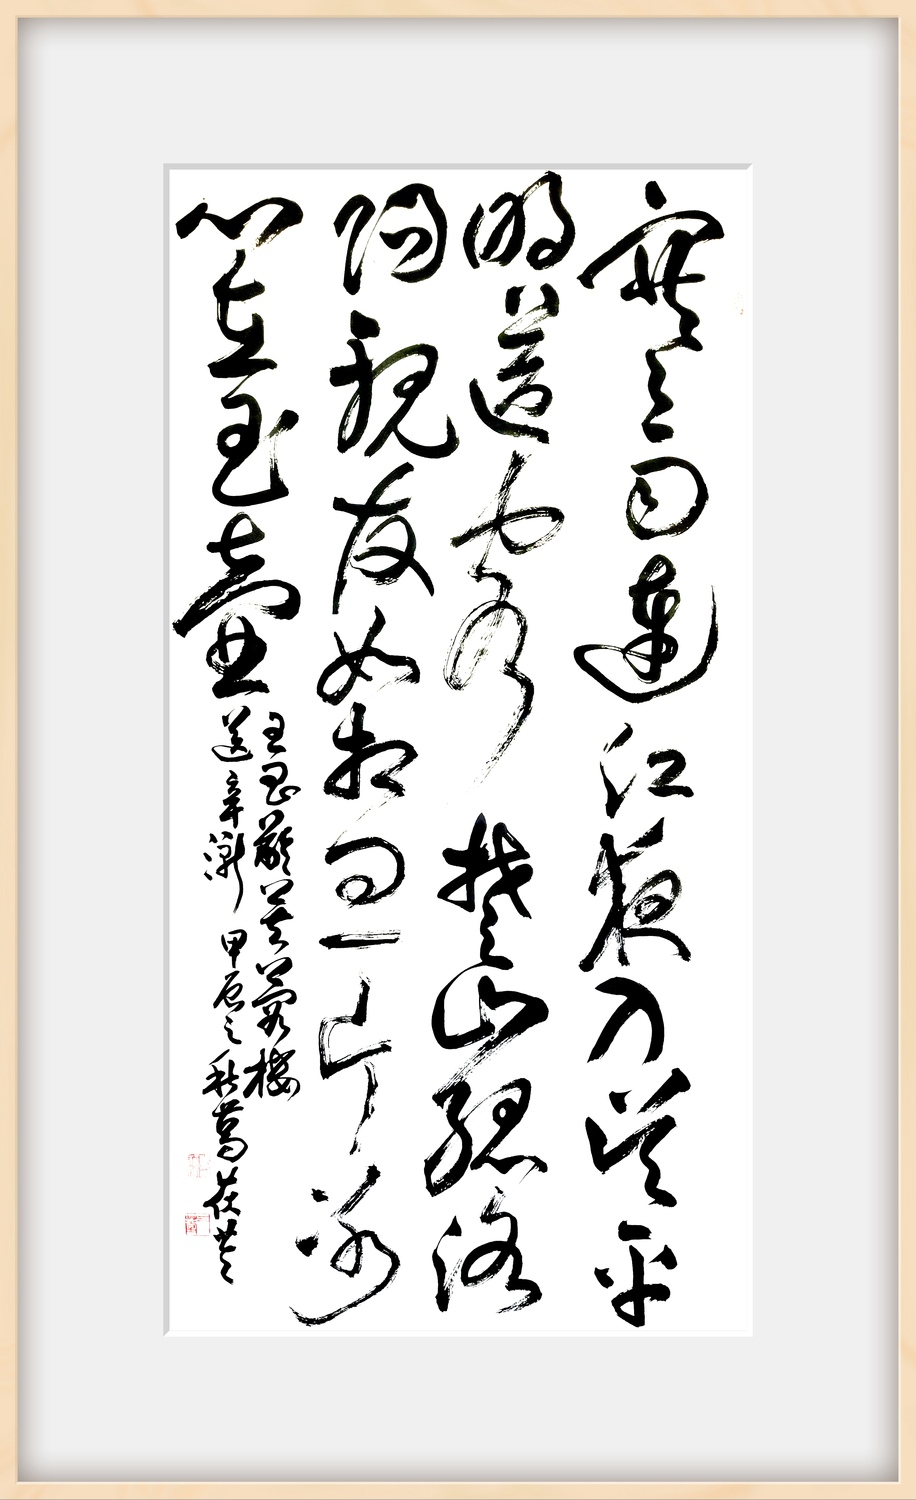 寒雨連江夜入吴平
明送客楚山孤洛
陽親友如相问一片冰
心在玉壶
王昌齡芙蓉楼
送辛漸 甲辰之秋葛茯苓